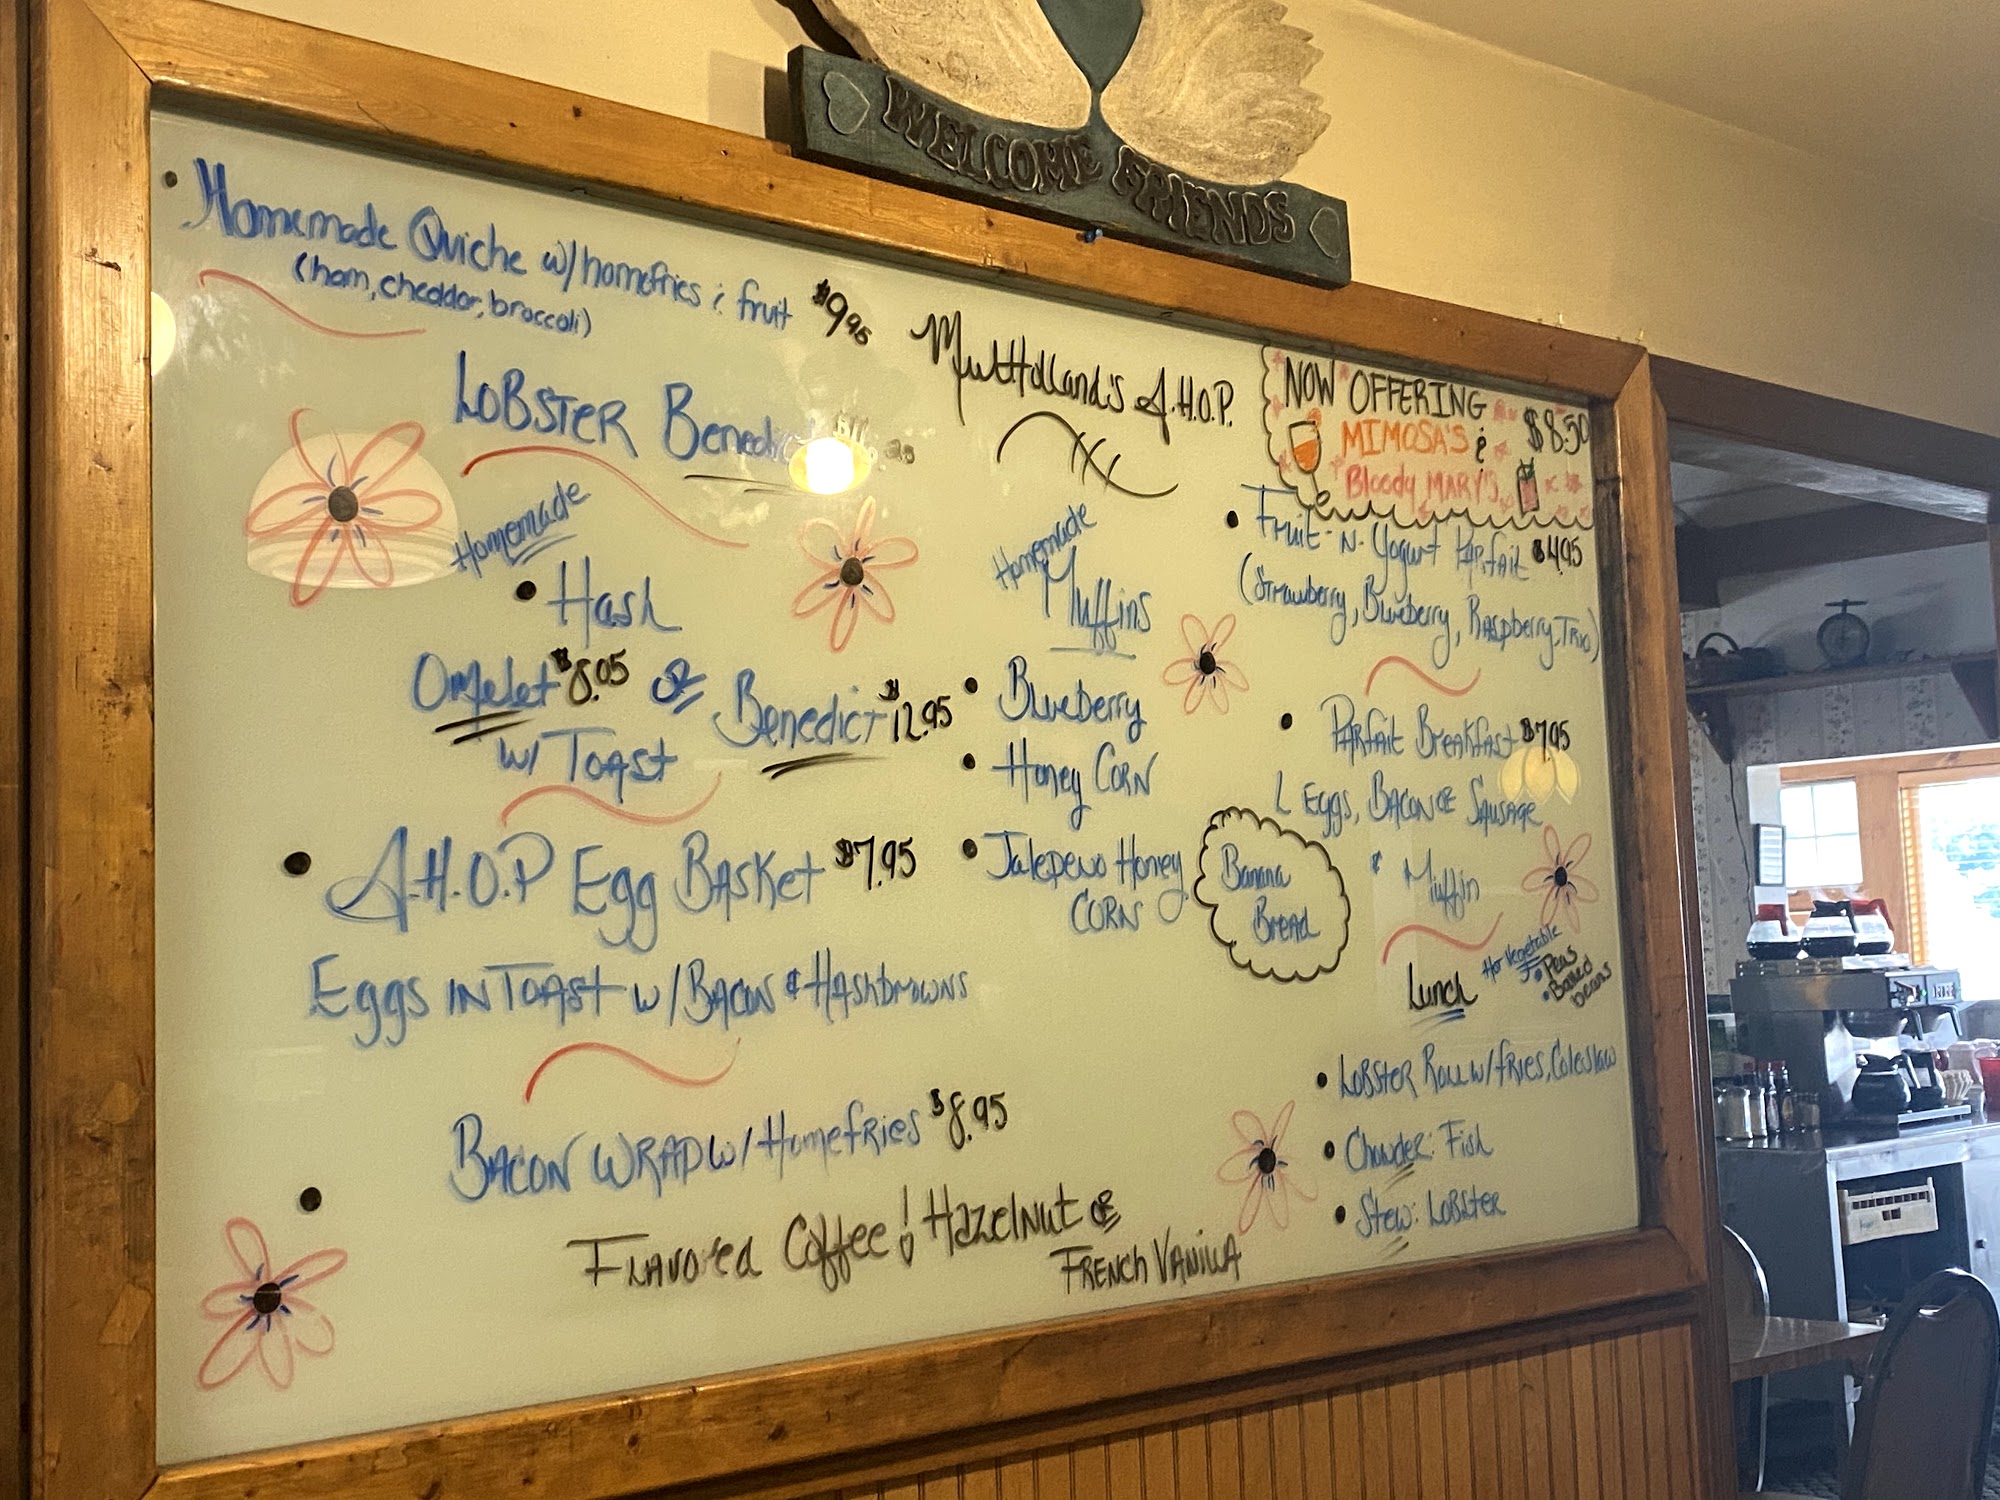 WELCOME FRIENDS
Homemade Quiche w/homefries & fruit $9.95
(ham, cheddar, broccoli)
LOBSTER Benedict
Homemade
Hash
Omelet $8.05 OR Benedict $12.95
w/ TOAST
A.H.O.P Egg BASKet $7.95
Eggs IN TOAST w/BACON & HAShbrowns
BACON WRAP w/Homefries $8.95
FLAVored Coffee! HazelNut OR
FRENCh VANILLA
MulHolland's A.H.O.P.
Homemade
Muffins
Blueberry
Honey CORN
Jalepeno Honey
CORN
Banana
BREAD
NOW OFFERING
MIMOSA'S & $8.50
Bloody MARY'S
Fruit-N-Yogurt PARfait $4.95
(Strawberry, Blueberry, RASpberry, TRIO)
PARfait BreakfAst $7.95
Eggs, BACON OR SAUSAGE
& Muffin
Lunch
Hot Vegetable
Peas
Baked
beans
LOBSTER ROLL w/fRIES, Coleslaw
Chowder: Fish
Stew: LOBSTER